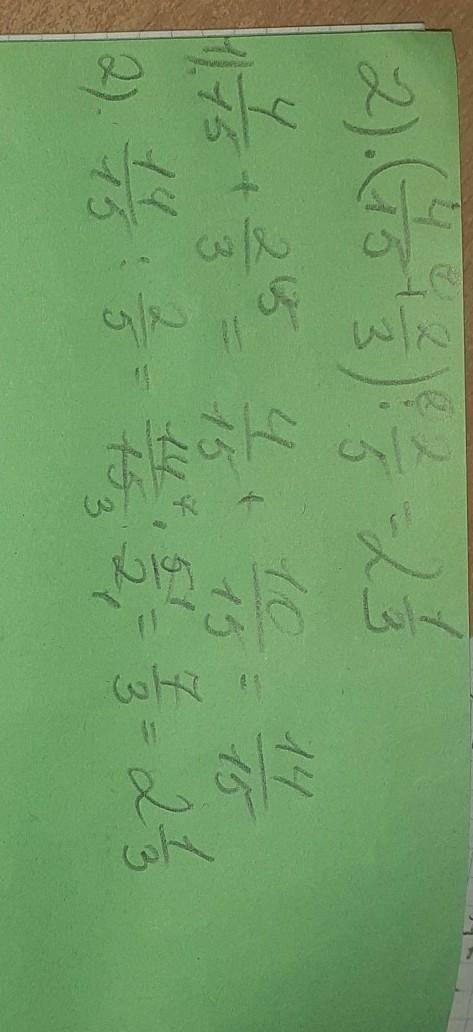 2). (4/15 + 2/3) : 2/5 = 2 1/3
1). 4/15 + 2/3 5 = 4/15 + 10/15 = 14/15
2). 14/15 : 2/5 = 14 7/15 3 · 5 1/2 1 = 7/3 = 2 1/3